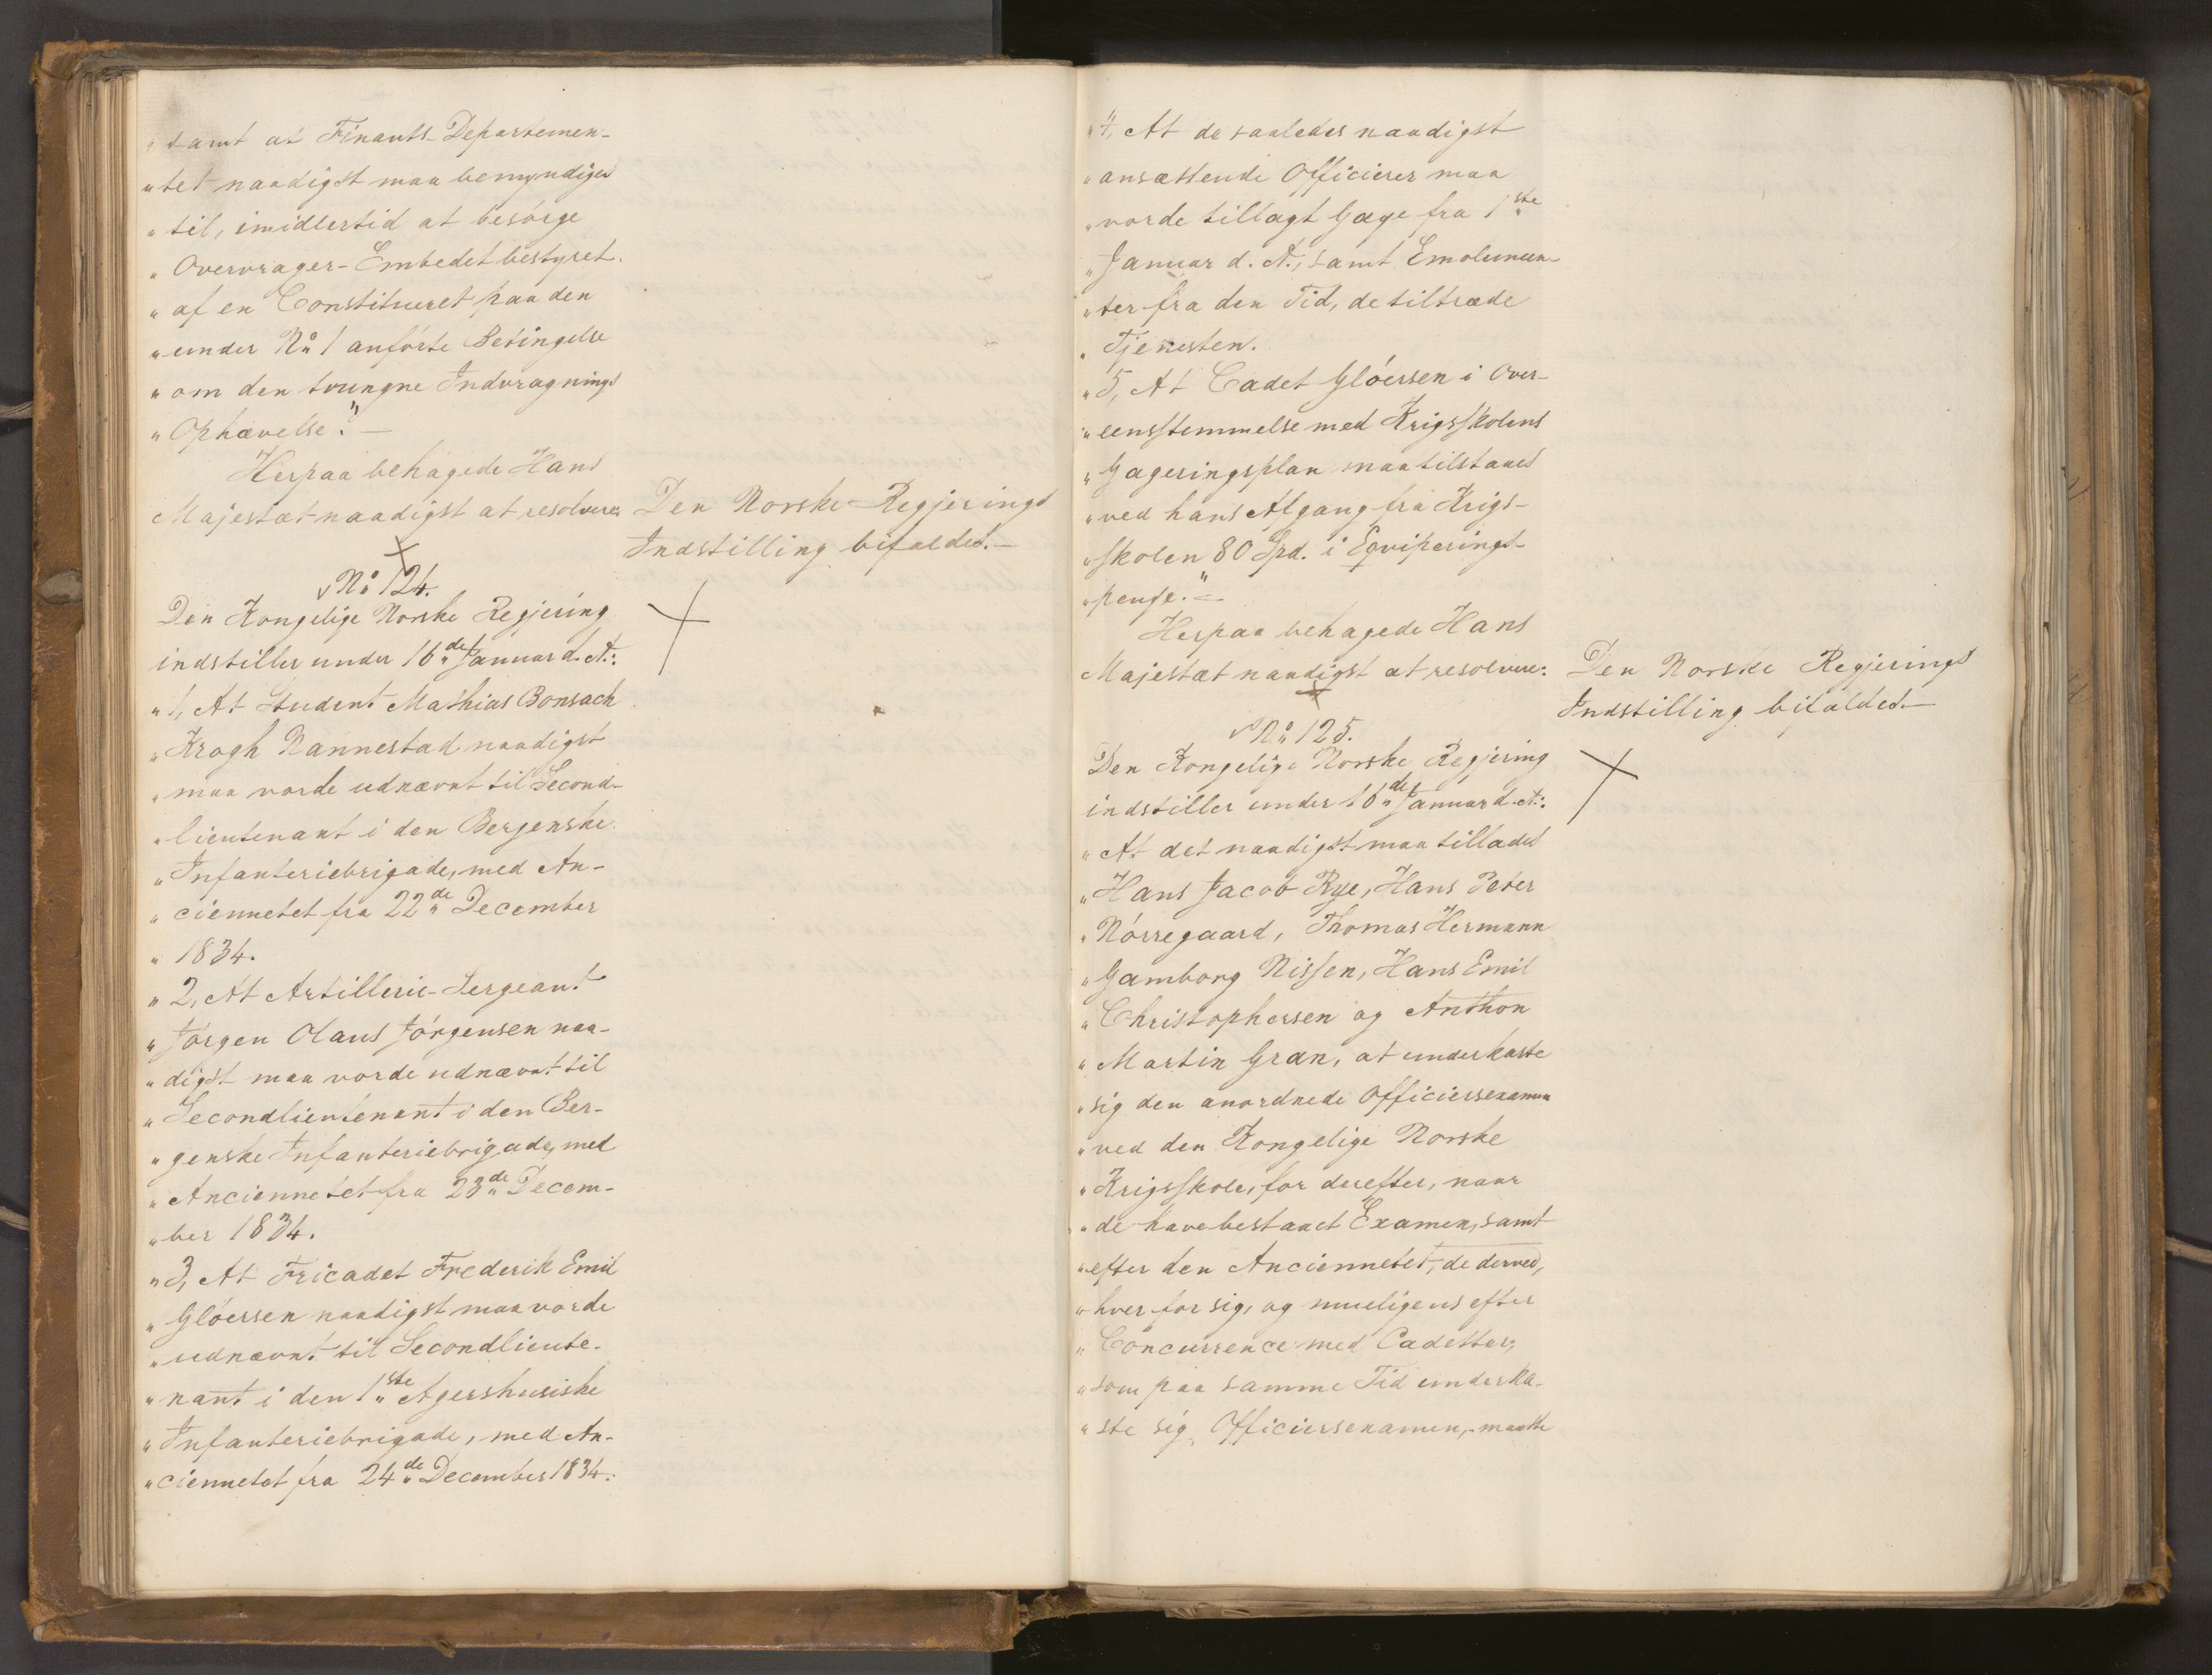 samt at Finants-Departemen-
„tet naadigst maa bemyndiges
„til, imidlertid at besörge
„Overvrager-Embedet bestyret
„af en Constitueret paa den
„under No 1 anförte Betingelse
„om den tvungne Indvragnings
„Ophævelse." —
Herpaa behagede Hans
Majestæt naadigst at resolvere:
Den Norske Regjerings
Indstilling bifaldes. —
No 124.
Den Kongelige Norske Regjering
indstiller under 16de Januar d. A.:
„1, At Student Mathias Bonsach
„Krogh Nannestad naadigst
„maa vorde udnævnt til Second-
„lieutenant i den Bergenske
„Infanteriebrigade, med An-
„ciennetet fra 22de December
„1834.
„2, At Artillerie-Sergeant
„Jörgen Olaus Jörgensen naa-
„digst maa vorde udnævnt til
„Secondlieutenant i den Ber-
„genske Infanteriebrigade, med
„Anciennetet fra 23de Decem-
„ber 1834.
„3, At Fricadet Frederik Emil
„Glöersen naadigst maa vorde
„udnævnt til Secondlieute-
„nant i den 1ste Agershusiske
„Infanteriebrigade, med An-
„ciennetet fra 24de December 1834.
„4, At de saaledes naadigst
„ansættende Officierer maa
„vorde tillagt Gage fra 1ste
„Januar d. A., samt Emolumen-
„ter fra den Tid, de tiltræde
„Tjenesten.
„5, At Cadet Glöersen i Over-
„eensstemmelse med Krigsskolens
„Gageringsplan maa tilstaaes
„ved hans Afgang fra Krigs-
„skolen 80 Spd. i Eqviperings-
„penge." —
Herpaa behagede Hans
Majestæt naadigst at resolvere:
Den Norske Regjerings
Indstilling bifaldes. —
No 125.
Den Kongelige Norske Regjering
indstiller under 16de Januar d. A.:
„At det naadigst maa tillades
„Hans Jacob Rye, Hans Peter
„Nörregaard, Thomas Hermann
„Gamborg Nissen, Hans Emil
„Christophersen og Anthon
„Martin Gran, at underkaste
„sig den anordnede Officiersexamen
„ved den Kongelige Norske
„Krigsskole, for derefter, naar
„de have bestaaet Examen, samt
„efter den Anciennetet, de derved,
„hver for sig, og mueligens efter
„Concurrence med Cadetter,
„som paa samme Tid underka-
„ste sig Officiersexamen, maatte